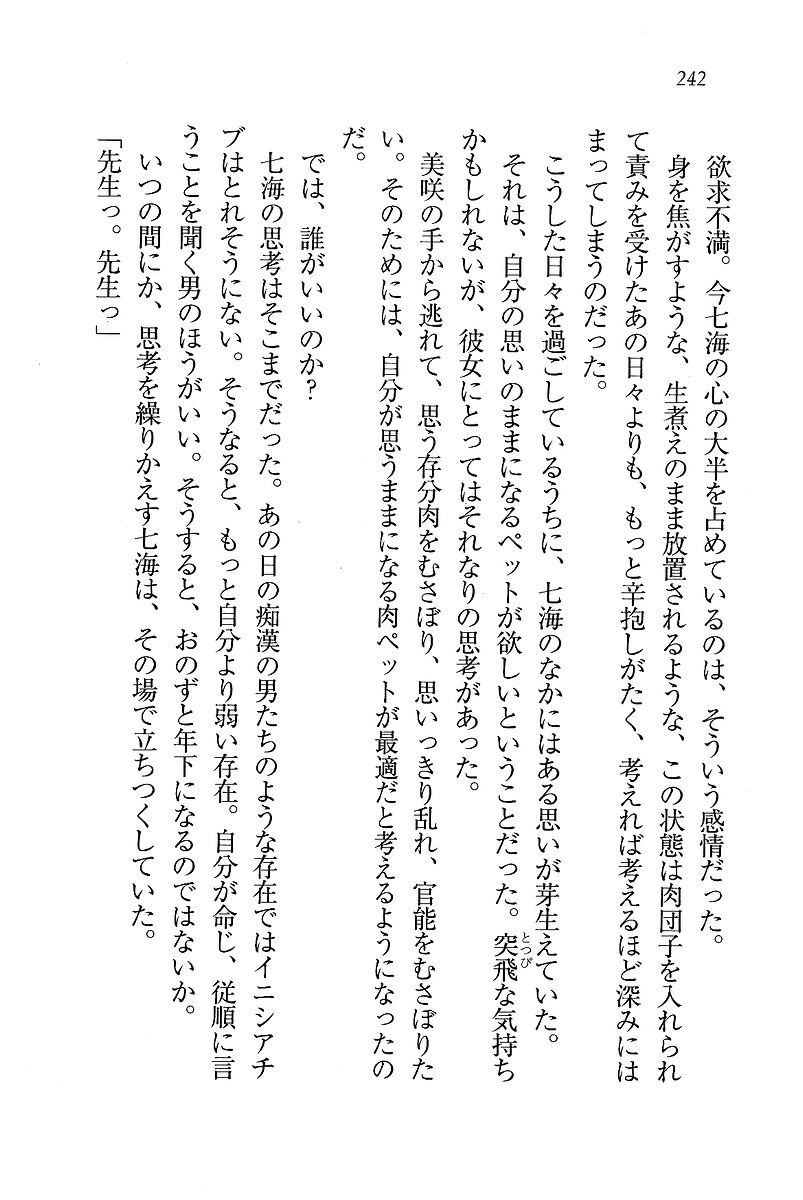 242
欲求不満。今七海の心の大半を占めているのは、そういう感情だった。
身を焦がすような、生煮えのまま放置されるような、この状態は肉団子を入れられ
て責みを受けたあの日々よりも、もっと辛抱しがたく、考えれば考えるほど深みには
まってしまうのだった。
こうした日々を過ごしているうちに、七海のなかにはある思いが芽生えていた。
それは、自分の思いのままになるペットが欲しいということだった。突飛な気持ち
かもしれないが、彼女にとってはそれなりの思考があった。
美咲の手から逃れて、思う存分肉をむさぼり、思いっきり乱れ、官能をむさぼりた
い。そのためには、自分が思うままになる肉ペットが最適だと考えるようになったの
だ。
では、誰がいいのか？
七海の思考はそこまでだった。あの日の痴漢の男たちのような存在ではイニシアチ
ブはとれそうにない。そうなると、もっと自分より弱い存在。自分が命じ、従順に言
うことを聞く男のほうがいい。そうすると、おのずと年下になるのではないか。
いつの間にか、思考を繰りかえす七海は、その場で立ちつくしていた。
「先生っ。先生っ」